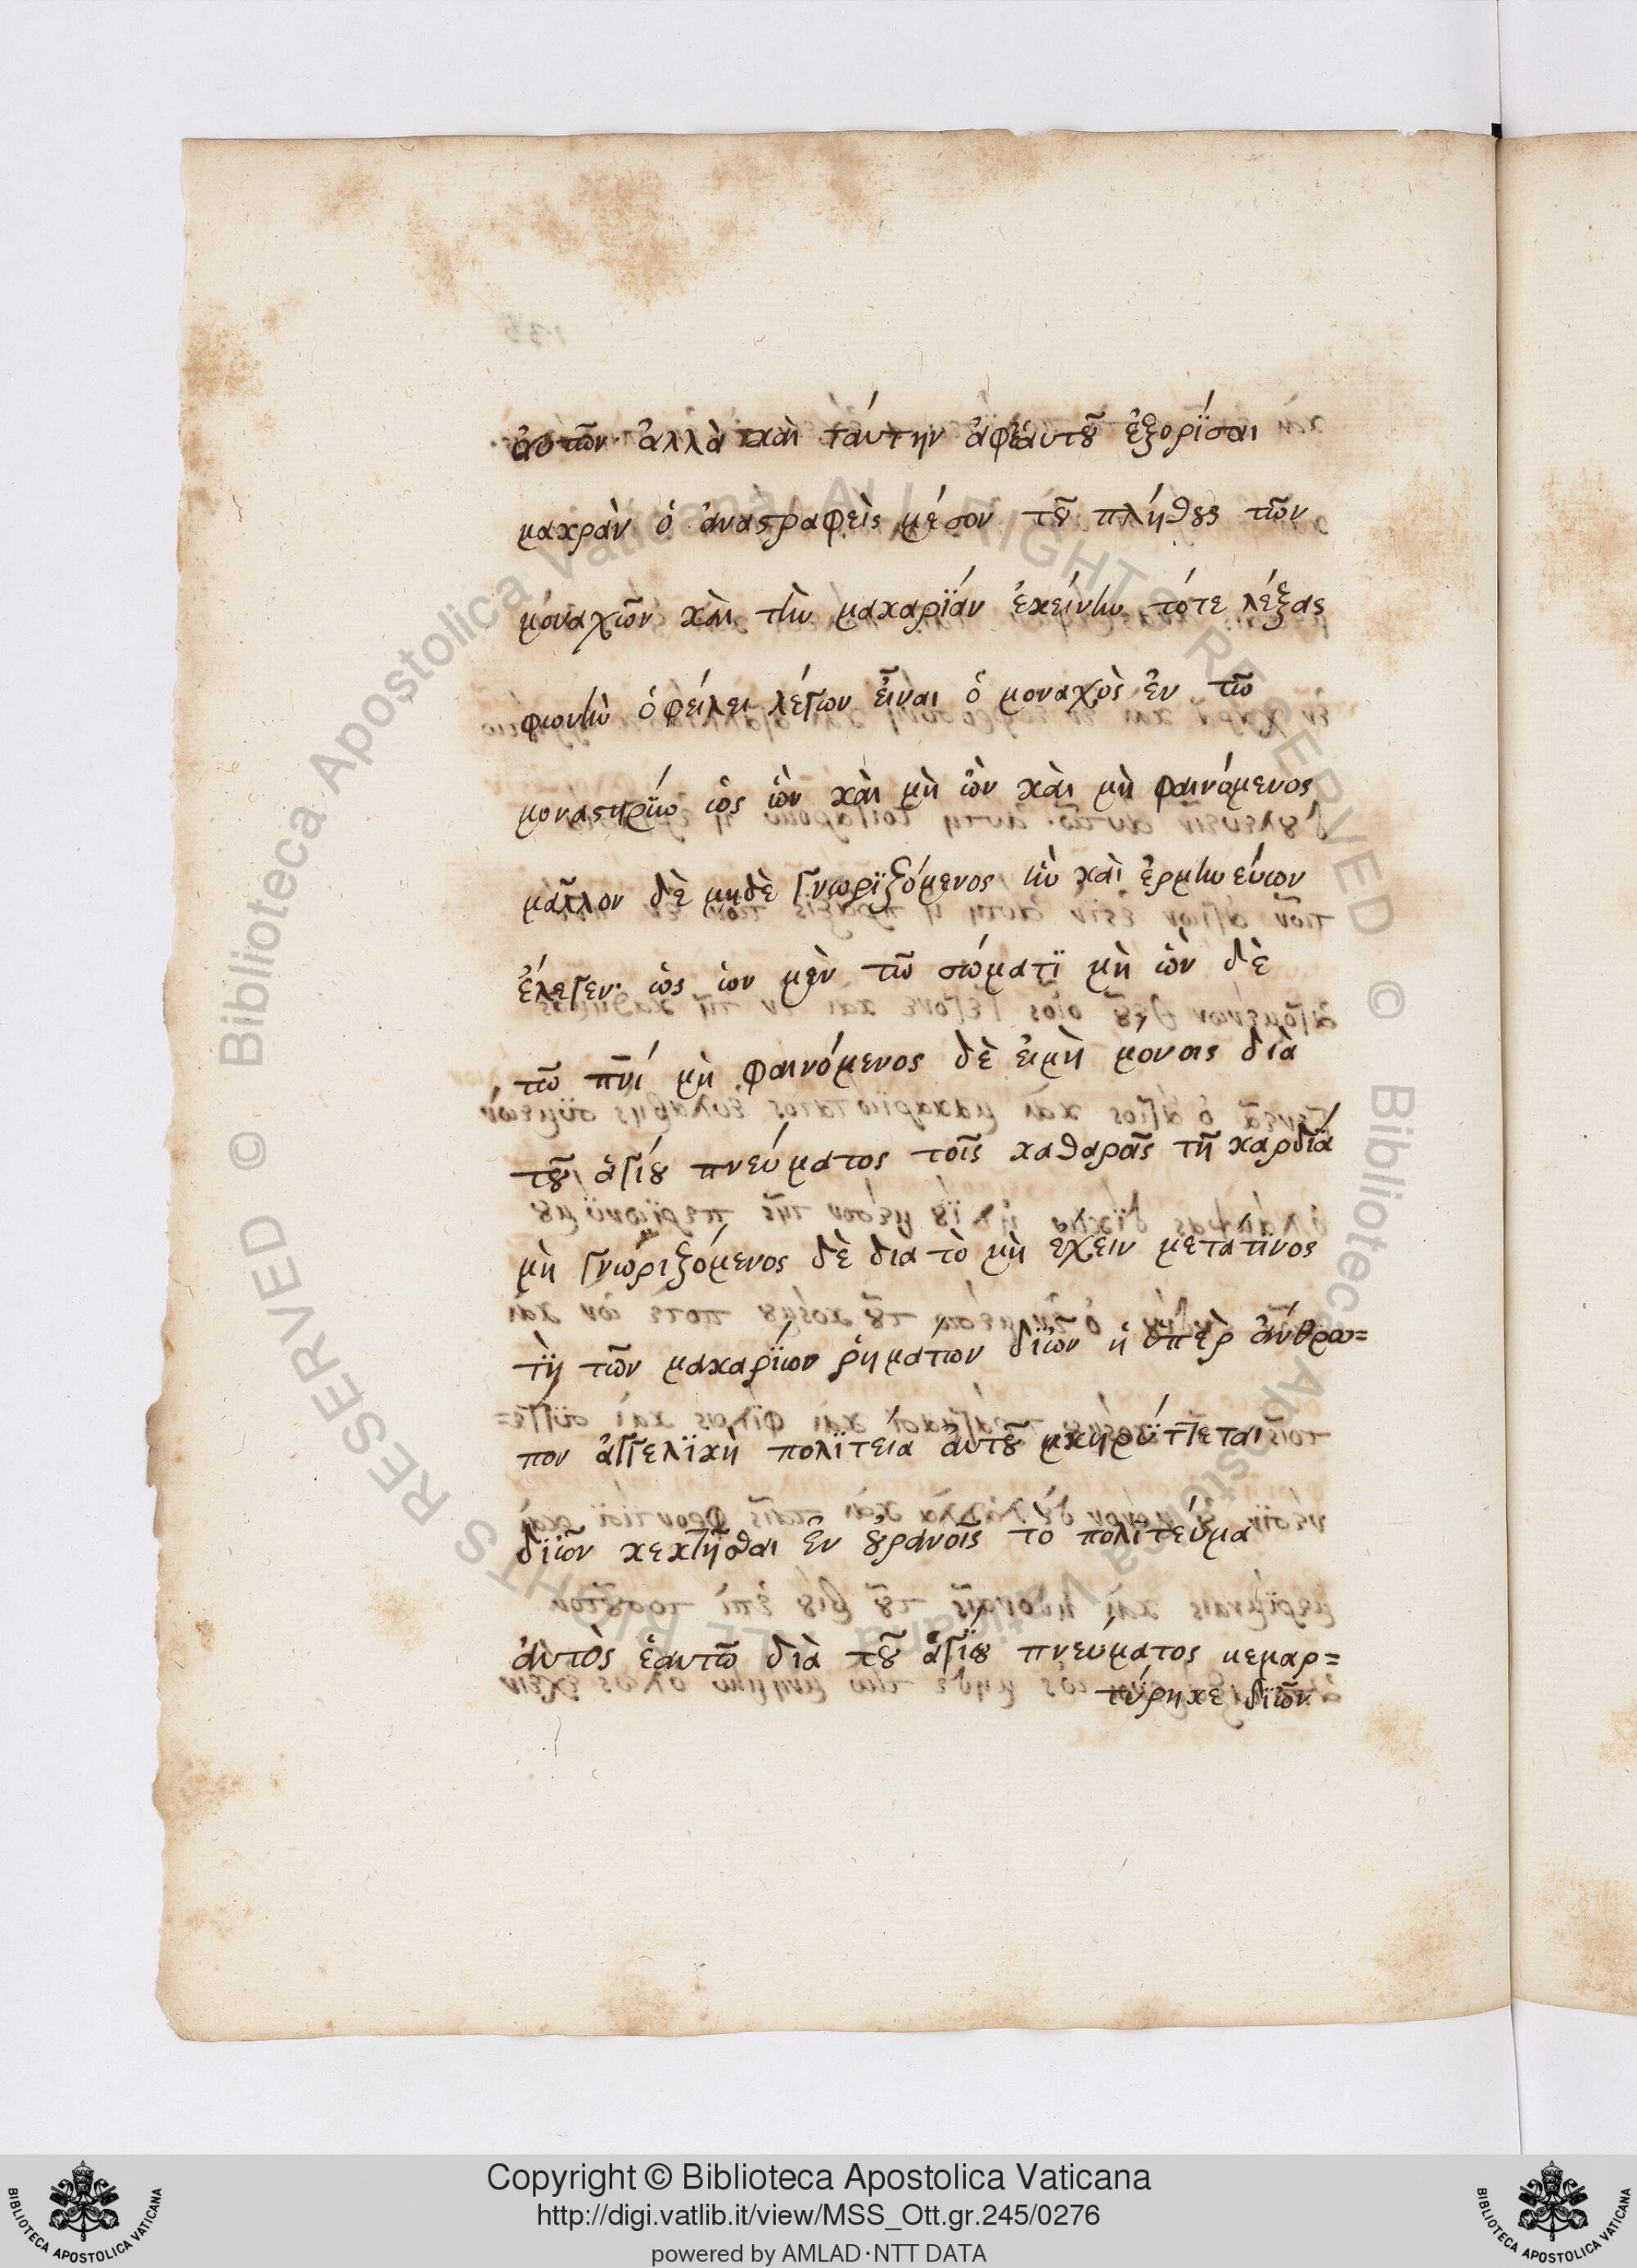 ἀυτῶν· ἀλλὰ καὶ τάυτην ἀφἑαυτοῦ ἐξορΐσαι
μακρὰν ὁ ἀναστραφεὶς μέσον τοῦ πλήθους τῶν
μοναχῶν κὰι τὴν μακαρϊάν ἐκείνην τότε λέξας
φωνὴν ὀφείλει λέγων εἶναι ὁ μοναχὸς ἐν τῶ
μοναστηρίω ὡς ὢν κὰι μὴ ὢν κὰι μὴ φαινόμενος
μᾶλλον δὲ μηδὲ γνωρϊζόμενος ἣν καὶ ἑρμηνεύων
ἔλεγεν· ὡς ὢν μὲν τῶ σώματϊ μὴ ὢν δὲ
τῶ πνί μὴ φαινόμενος δὲ ἐιμὴ μόνοις διὰ
τοῦ ἁγίου πνεύματος τοῖς καθαροῖς τῆ καρδϊά
μὴ γνωριζόμενος δὲ δια τὸ μὴ ἔχειν μετάτϊνος
τῒ τῶν μακαρΐων ῥημάτων δϊὧν ἡ ὑπὲρ ἄνθρω=
πον ἀγγελϊκὴ πολϊτεία ἀυτοῦ κηρΰττεται
δϊὧν κεκτῆσθαι ἐν οὐρανοῖς τὸ πολίτευμα
ἀυτὸς ἑαυτῶ διὰ τοῦ ἁγΐου πνεύματος μεμαρ=
τύρηκε δϊὧν
Copyright © Biblioteca Apostolica Vaticana
http://digi.vatlib.it/view/MSS_Ott.gr.245/0276
powered by AMLAD·NTT DATA
BIBLIOTECA APOSTOLICA VATICANA
BIBLIOTECA APOSTOLICA VATICANA
© Biblioteca Apostolica Vaticana ALL RIGHTS RESERVED
© Biblioteca Apostolica Vaticana ALL RIGHTS RESERVED